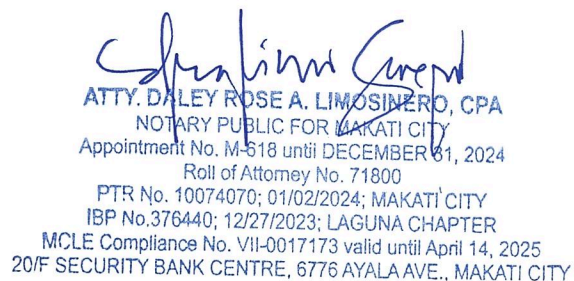 ATTY. DALEY ROSE A. LIMOSINERO, CPA
NOTARY PUBLIC FOR MAKATI CITY
Appointment No. M-618 until DECEMBER 31, 2024
Roll of Attorney No. 71800
PTR No. 10074070; 01/02/2024; MAKATI CITY
IBP No.376440; 12/27/2023; LAGUNA CHAPTER
MCLE Compliance No. VII-0017173 valid until April 14, 2025
20/F SECURITY BANK CENTRE, 6776 AYALA AVE., MAKATI CITY